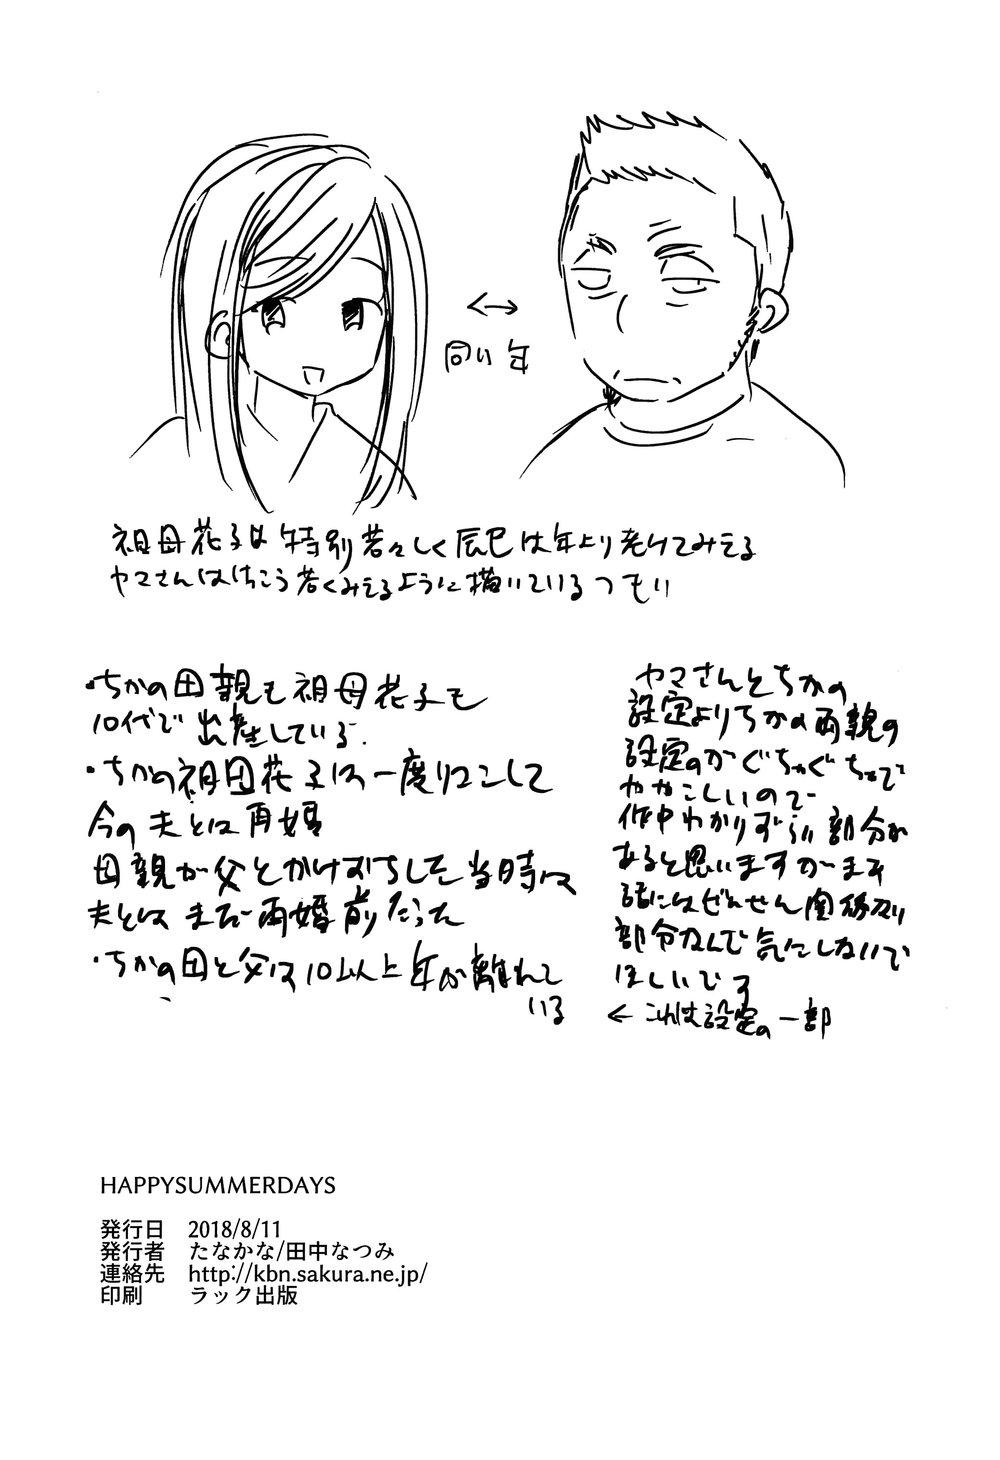 同い年
祖母花子は特別若々しく辰巳は年より老けてみえる
ヤマさんはけっこう若くみえるように描いているつもり
・ちかの母親も祖母花子も
10代で出産している.
・ちかの祖母花子は一度リコンして
今の夫とは再婚
母親が父とかけおちした当時は
夫とはまだ再婚前だった
・ちかの母と父は10以上年が離れて
いる
ヤマさんとちかの
設定よりちかの両親の
設定のがぐちゃぐちゃで
ややこしいので
作中わかりずらい部分が
あると思いますがまあ
話にはぜんぜん関係ない
部分なんで気にしないで
ほしいです
← これは設定の一部
HAPPYSUMMERDAYS
発行日 2018/8/11
発行者 たなかな/田中なつみ
連絡先 http://kbn.sakura.ne.jp/
印刷 ラック出版